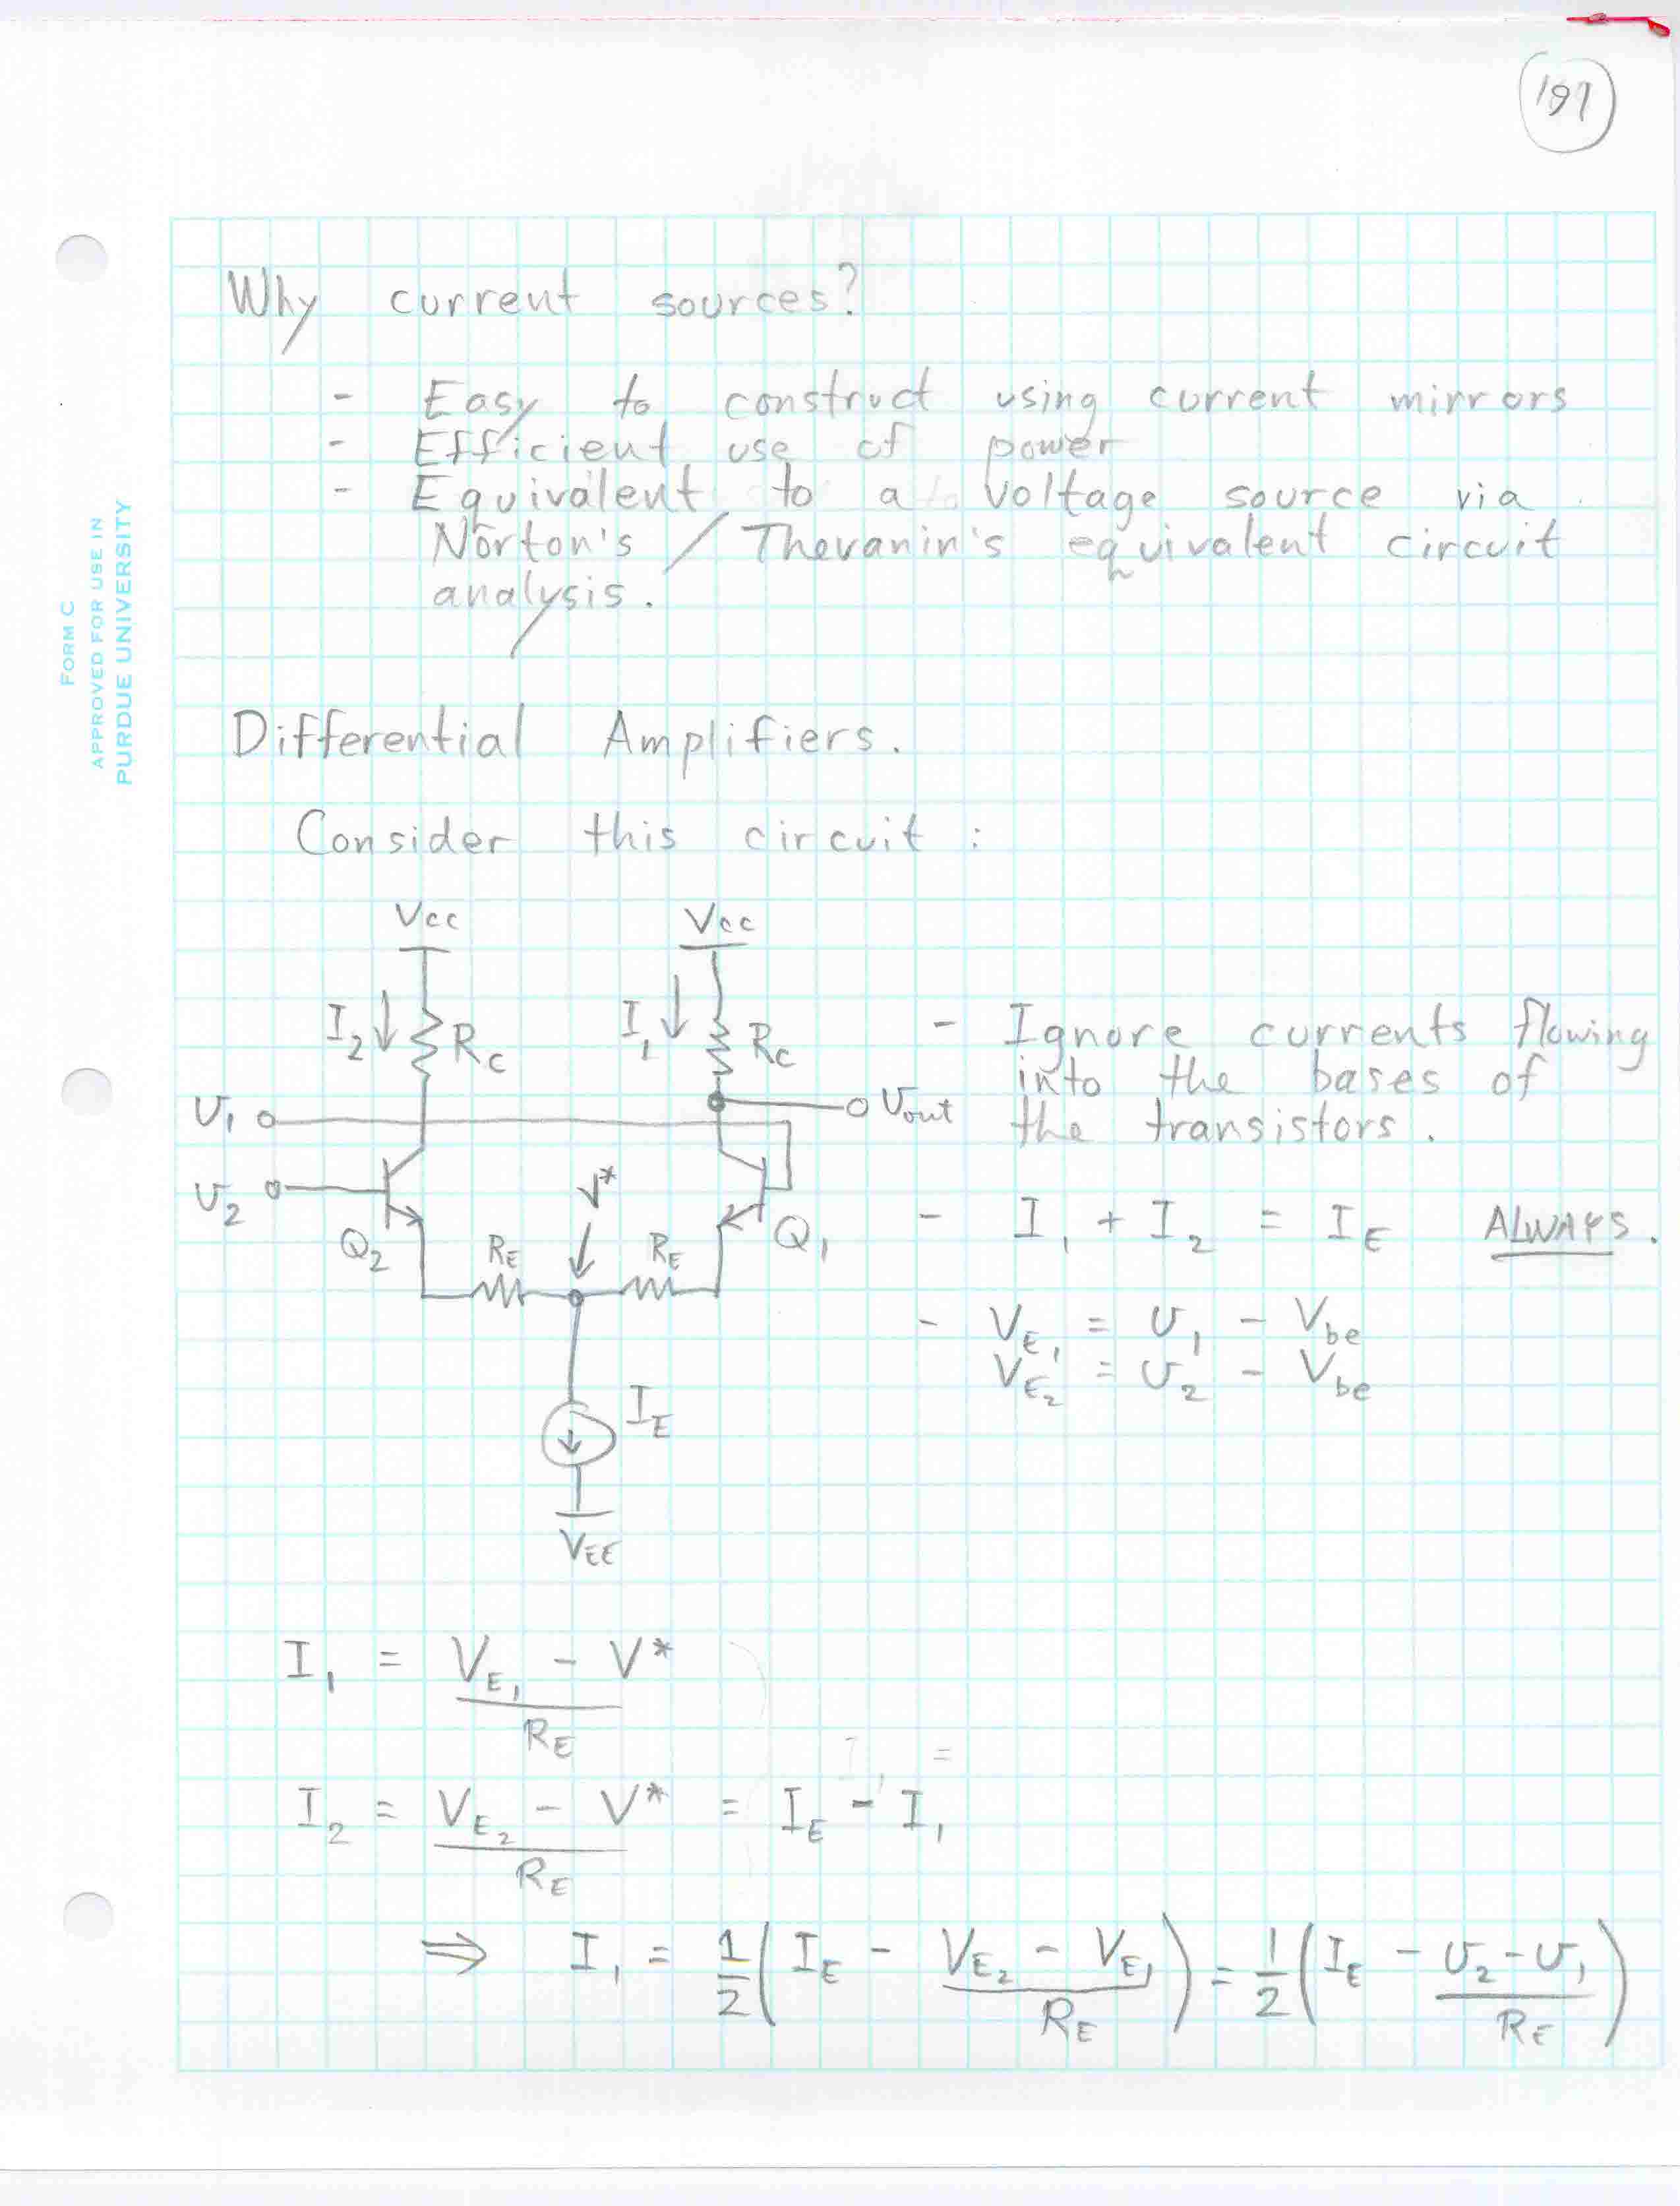 191
FORM C
APPROVED FOR USE IN
PURDUE UNIVERSITY
Why current sources?
- Easy to construct using current mirrors
- Efficient use of power
- Equivalent to a voltage source via
Norton's / Thevanin's equivalent circuit
analysis.
Differential Amplifiers.
Consider this circuit :
Vcc Vcc
I₂ R_C I₁ R_C
υ₁ υ_out
υ₂ V*
Q₂ R_E R_E Q₁
I_E
V_EE
- Ignore currents flowing
into the bases of
the transistors.
- I₁ + I₂ = I_E ALWAYS.
- V_E₁ = υ₁ - V_be
V_E₂ = υ₂ - V_be
I₁ = (V_E₁ - V*) / R_E
I₂ = (V_E₂ - V*) / R_E = I_E - I₁
⇒ I₁ = 1/2 (I_E - (V_E₂ - V_E₁) / R_E) = 1/2 (I_E - (υ₂ - υ₁) / R_E)